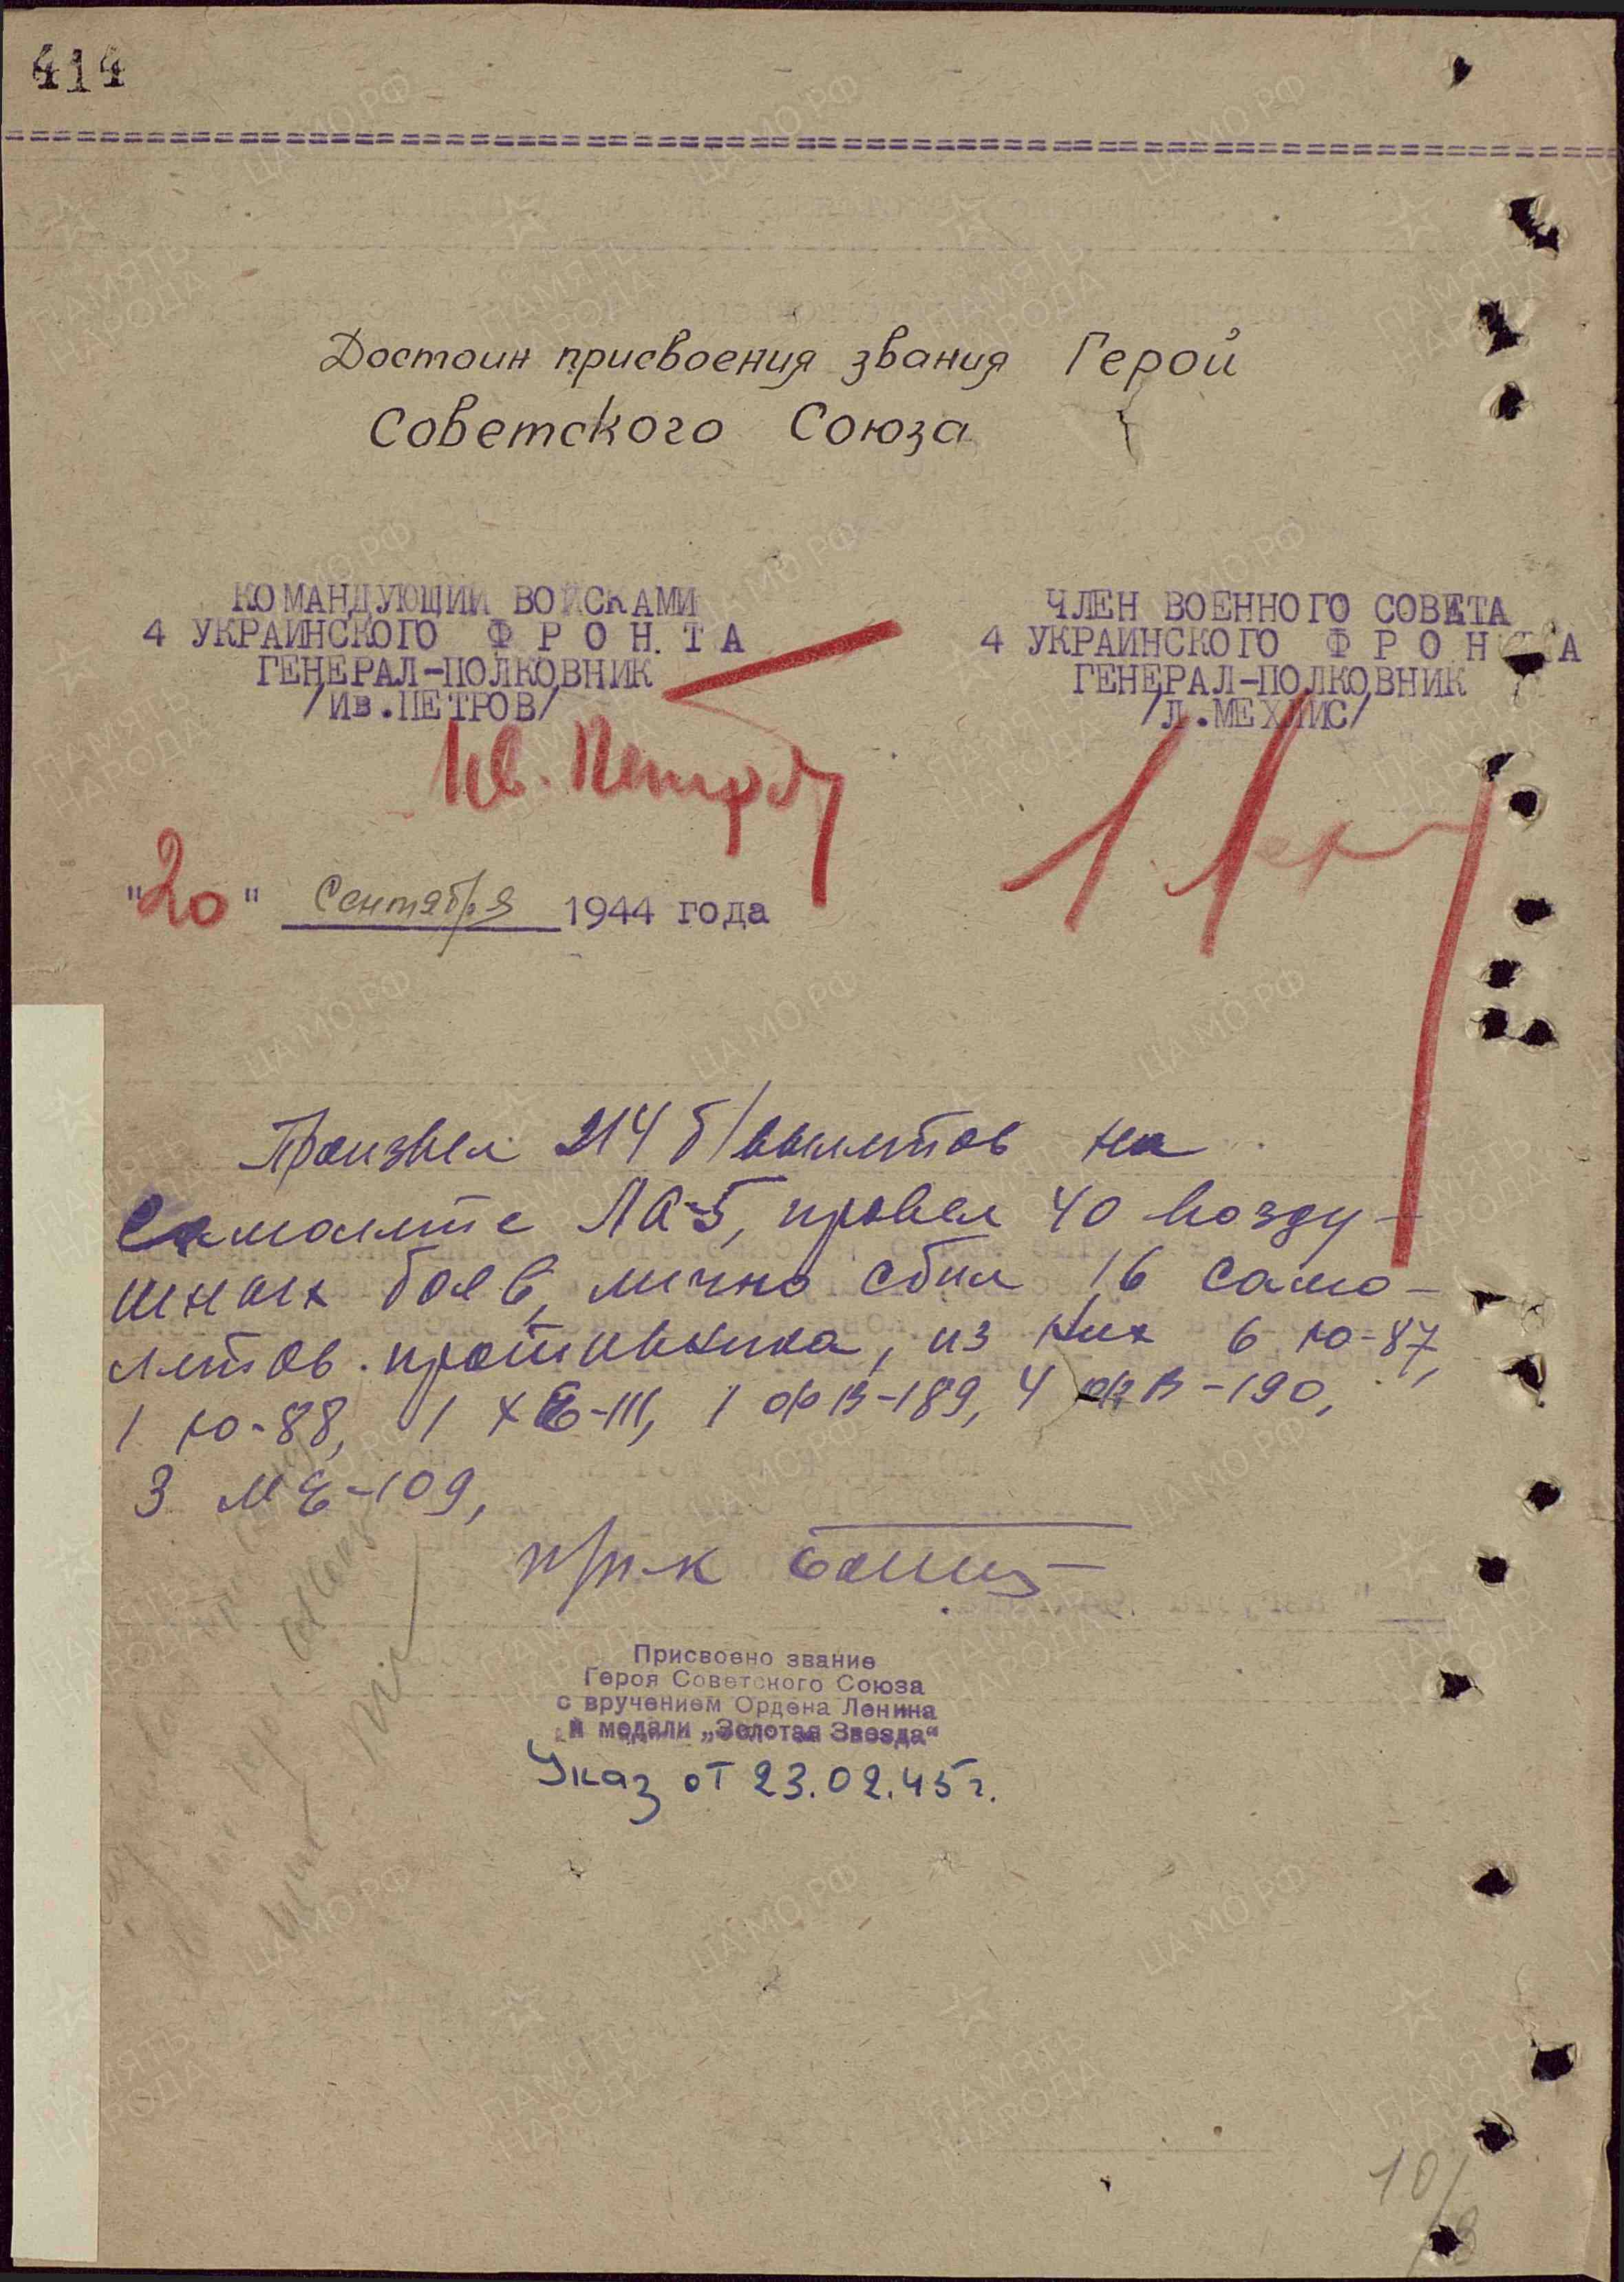 414
Достоин присвоения звания Герой
Советского Союза
КОМАНДУЮЩИЙ ВОЙСКАМИ
4 УКРАИНСКОГО ФРОНТА
ГЕНЕРАЛ-ПОЛКОВНИК
/Ив.ПЕТРОВ/
Ив. Петров
"20" Сентября 1944 года
ЧЛЕН ВОЕННОГО СОВЕТА
4 УКРАИНСКОГО ФРОНТА
ГЕНЕРАЛ-ПОЛКОВНИК
/Л.МЕХЛИС/
Произвел 214 б/вылетов на
самолете ЛА-5, провел 40 возду-
шных боев, лично сбил 16 само-
летов противника, из них 6 Ю-87,
1 Ю-88, 1 ХЕ-111, 1 ФВ-189, 4 ФВ-190,
3 МЕ-109,
Присвоено звание
Героя Советского Союза
с вручением Ордена Ленина
и медали „Золотая Звезда“
Указ от 23.02.45г.
ПАМЯТЬ
НАРОДА
ЦА МО РФ